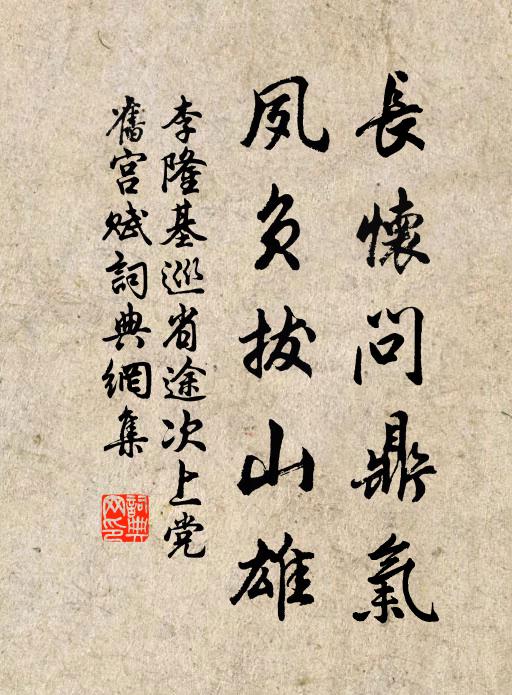 長懷問鼎氣
夙負拔山雄
李隆基巡省途次上党
舊宫赋詞典網集
詞典网印